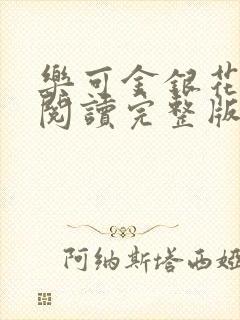 樂可金銀花
閱讀完整版
阿納斯塔西婭